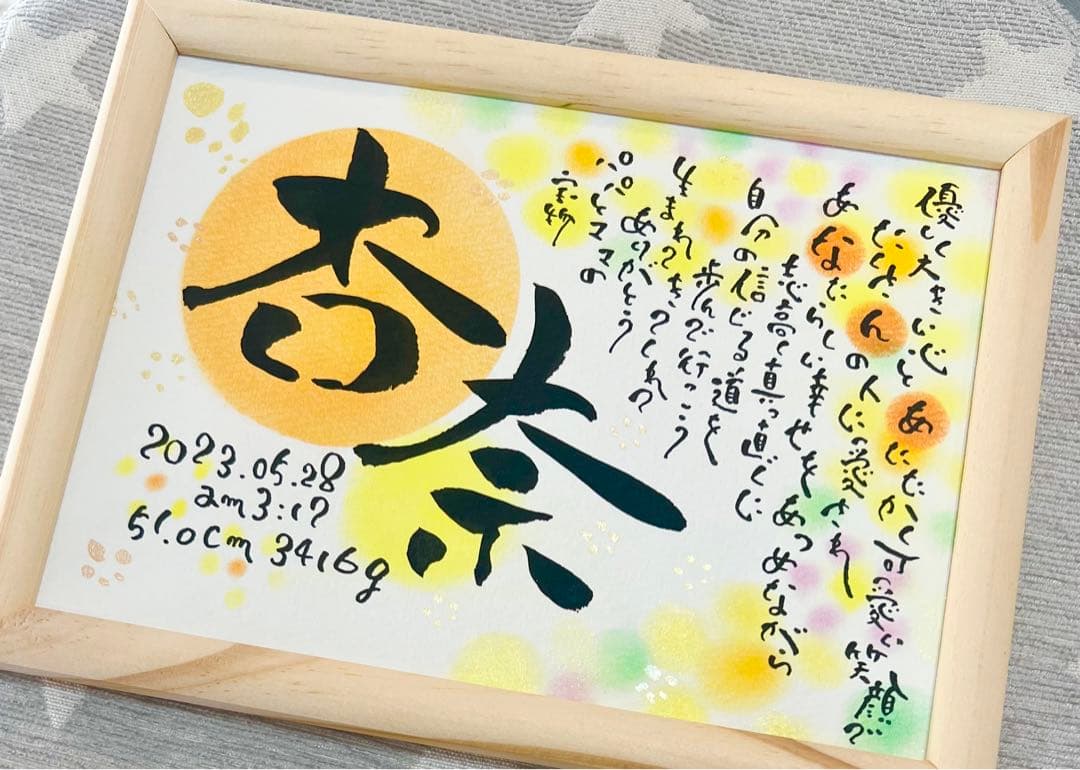 杏奈
優しく大きい心とあたたかく可愛い笑顔で
たくさんの人に愛され
あなたらしい幸せをあつめながら
志高く真っ直ぐに
自分の信じる道を
歩んで行こう
生まれてきてくれて
ありがとう
パパとママの
宝物
2023.05.28
am3:17
51.0cm 3416g